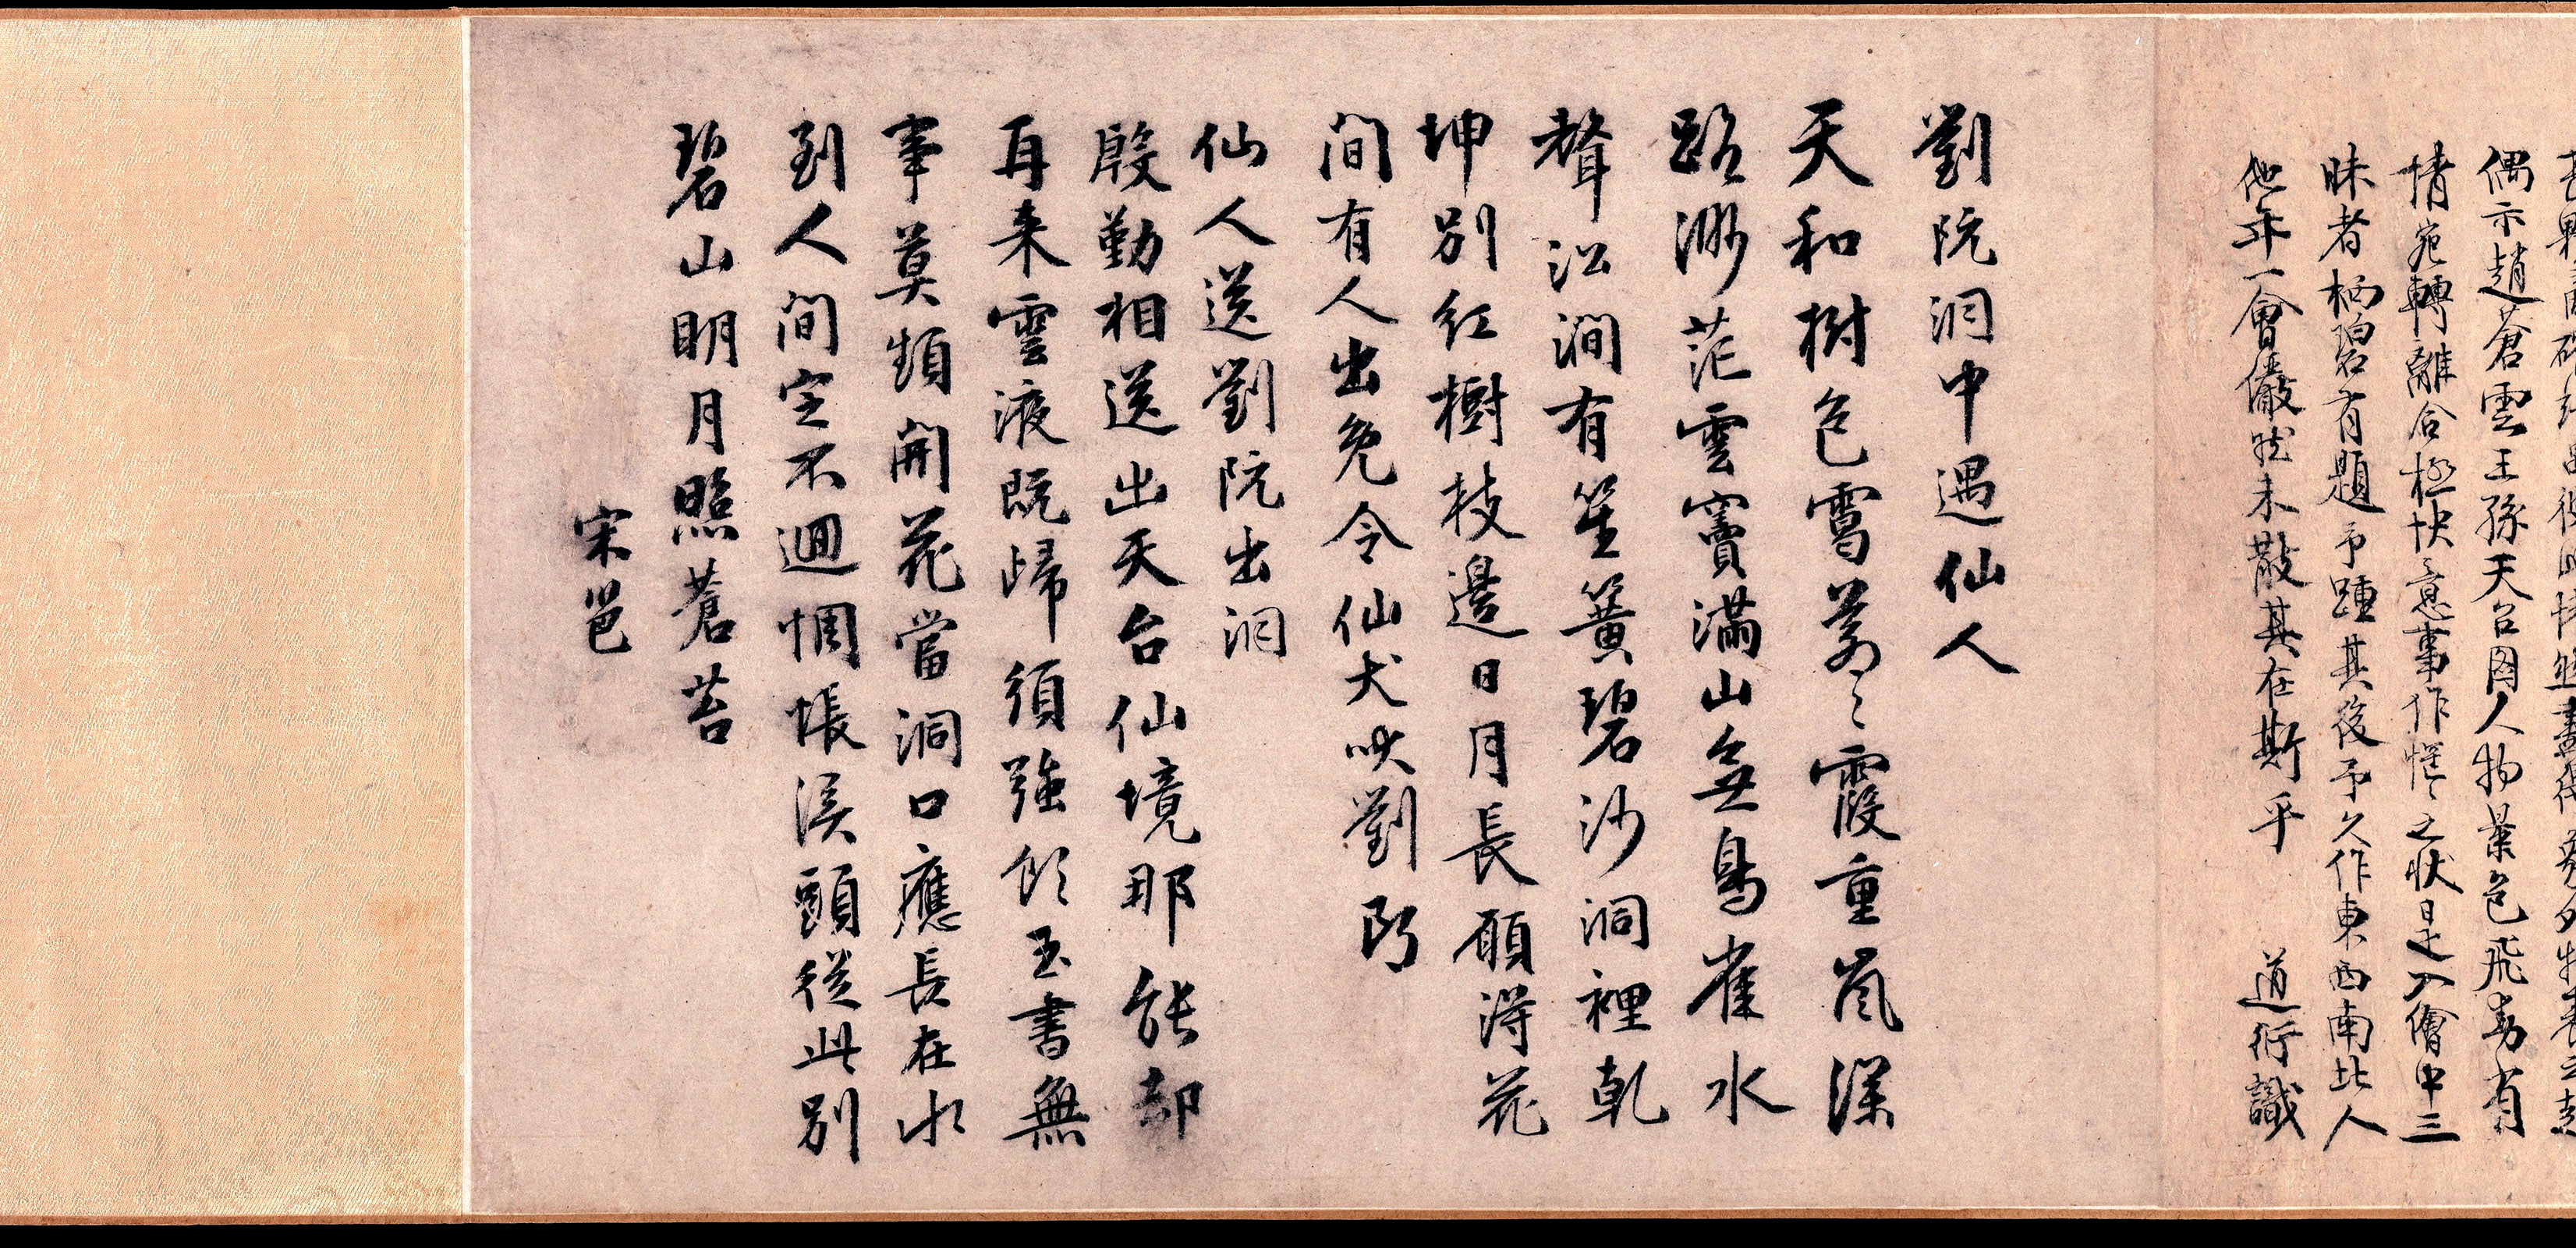 偶示趙蒼雲王孫天台圖人物景色飛動有
情宛轉離合極快意事作惺〻之狀是入繪中三
昧者栖碧有題予踵其後予久作東西南北人
他年一會儼然未散其在斯乎　道衍識
劉阮洞中遇仙人
天和樹色靄蒼〻霞重嵐深
路渺茫雲竇滿山無鳥雀水
聲㳂澗有笙簧碧沙洞裡乾
坤別紅樹枝邊日月長願得花
間有人出免令仙犬吠劉阮
仙人送劉阮出洞
殷勤相送出天台仙境那能却
再来雲液既歸須強飲玉書無
事莫頻開花當洞口應長在水
到人間定不迴惆悵溪頭從此別
碧山明月照蒼苔
宋邕